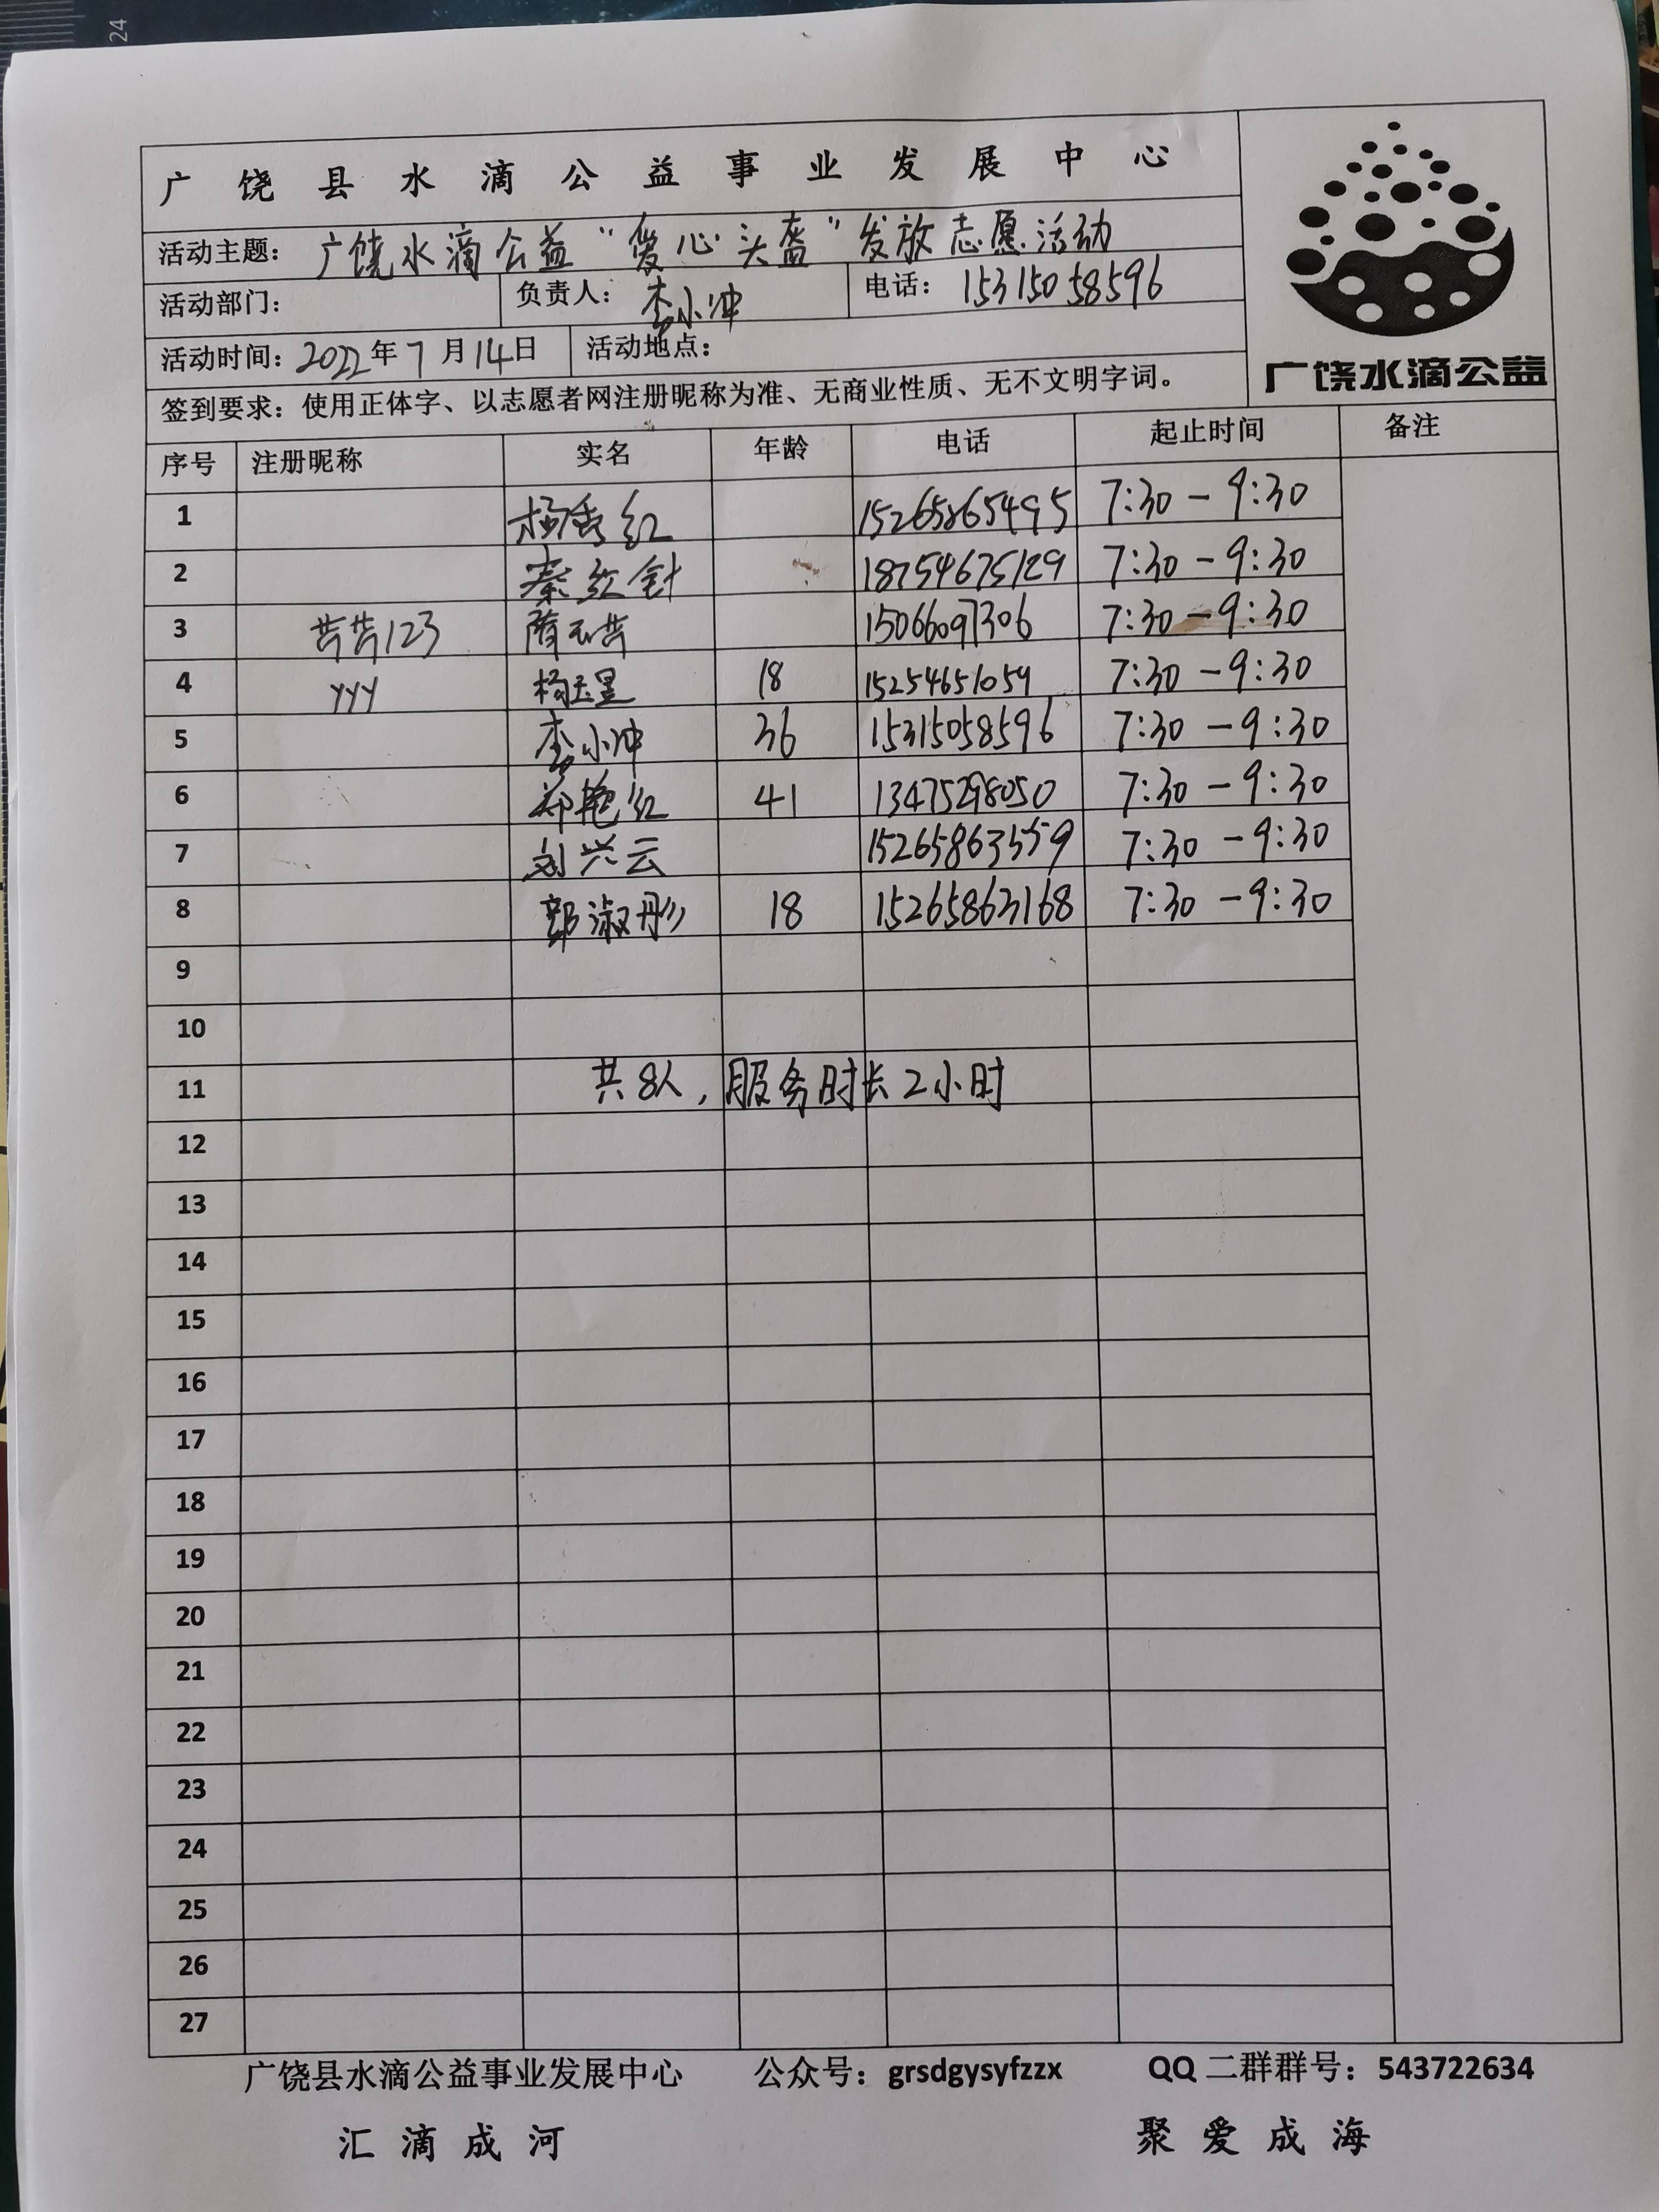 24
广饶县水滴公益事业发展中心
活动主题：广饶水滴公益“爱心头盔”发放志愿活动
活动部门： 负责人：李小冲 电话：15315058596
活动时间：2022年7月14日 活动地点：
广饶水滴公益
签到要求：使用正体字、以志愿者网注册昵称为准、无商业性质、无不文明字词。
序号 注册昵称 实名 年龄 电话 起止时间 备注
1 杨秀红 15265865495 7:30－9:30
2 秦红针 18754675129 7:30－9:30
3 苦苦123 15066097306 7:30－9:30
4 yyy 杨玉昱 18 15254651059 7:30－9:30
5 李小冲 36 15315058596 7:30－9:30
6 郑艳红 41 13475298050 7:30－9:30
7 刘兴云 15265863559 7:30－9:30
8 郭淑彤 18 15265863168 7:30－9:30
9
10
11 共8人，服务时长2小时
12
13
14
15
16
17
18
19
20
21
22
23
24
25
26
27
广饶县水滴公益事业发展中心 公众号：grsdgysyfzzx QQ二群群号：543722634
汇滴成河 聚爱成海